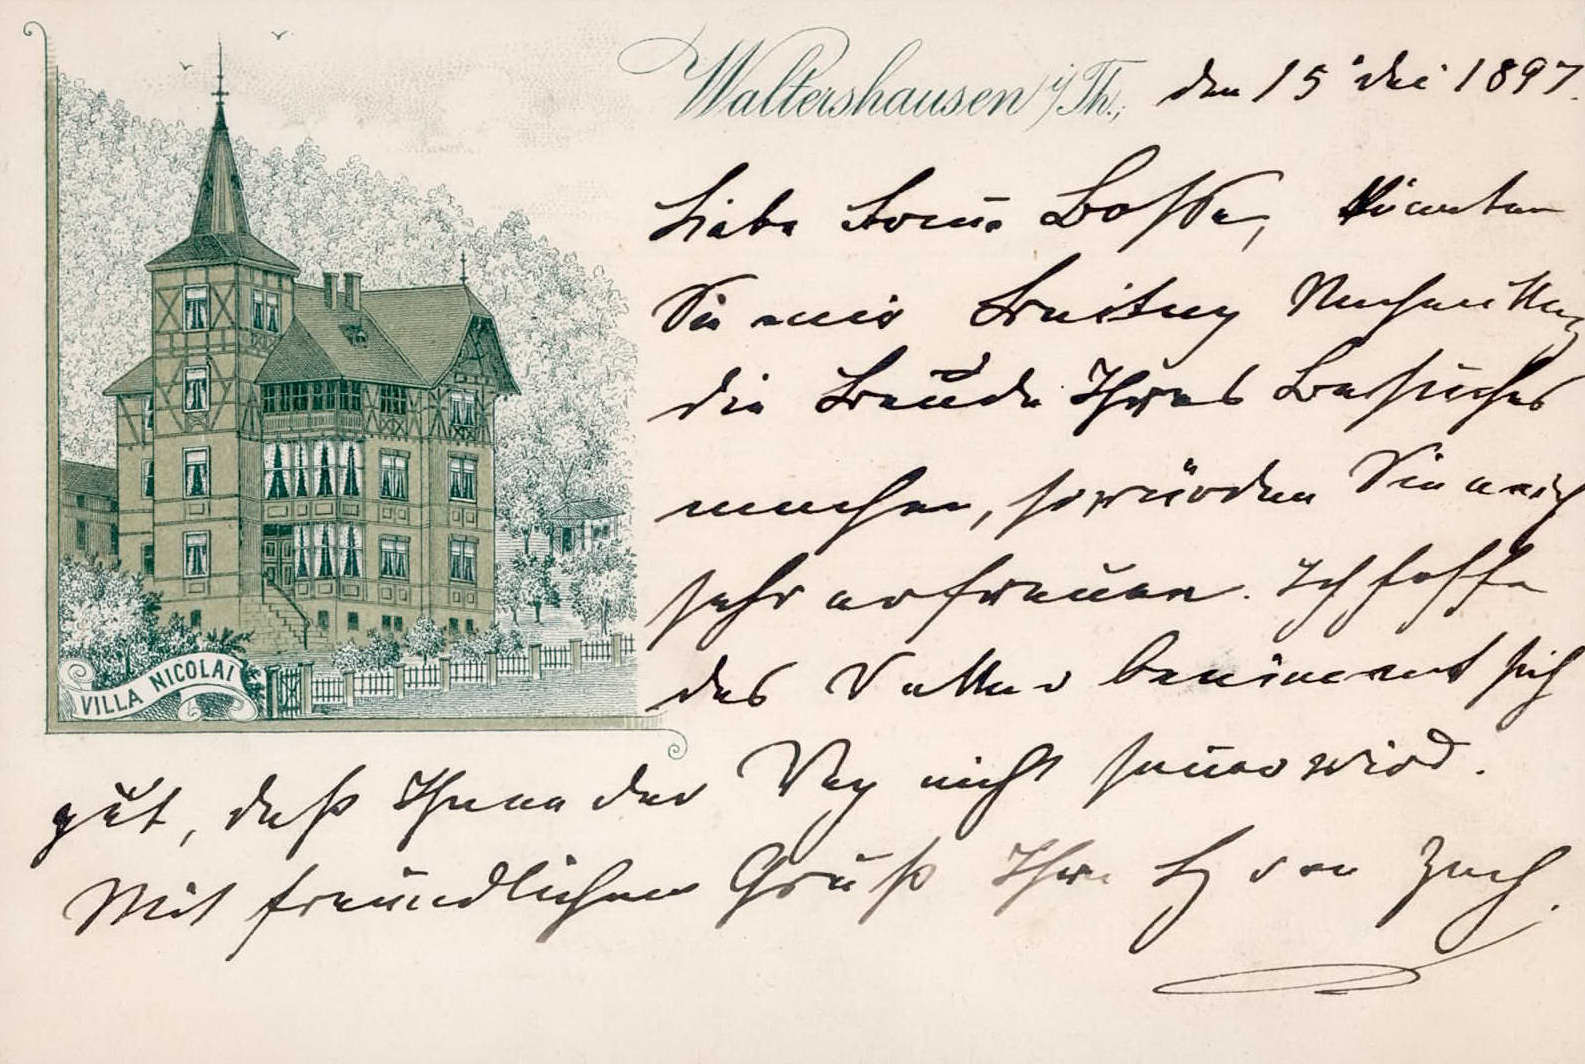 Waltershausen i/Th., den 15 Mai 1897.
Liebe Frau Bosse, Könnten
Sie mir Freitag Nachmittag
die Freude Ihres Besuches
machen, so würden Sie mich
sehr erfreuen. Ich hoffe
das Wetter benimmt sich
gut, daß Ihnen der Weg nicht sauer wird.
Mit freundlichem Gruß Ihre von Zach.
VILLA NICOLAI